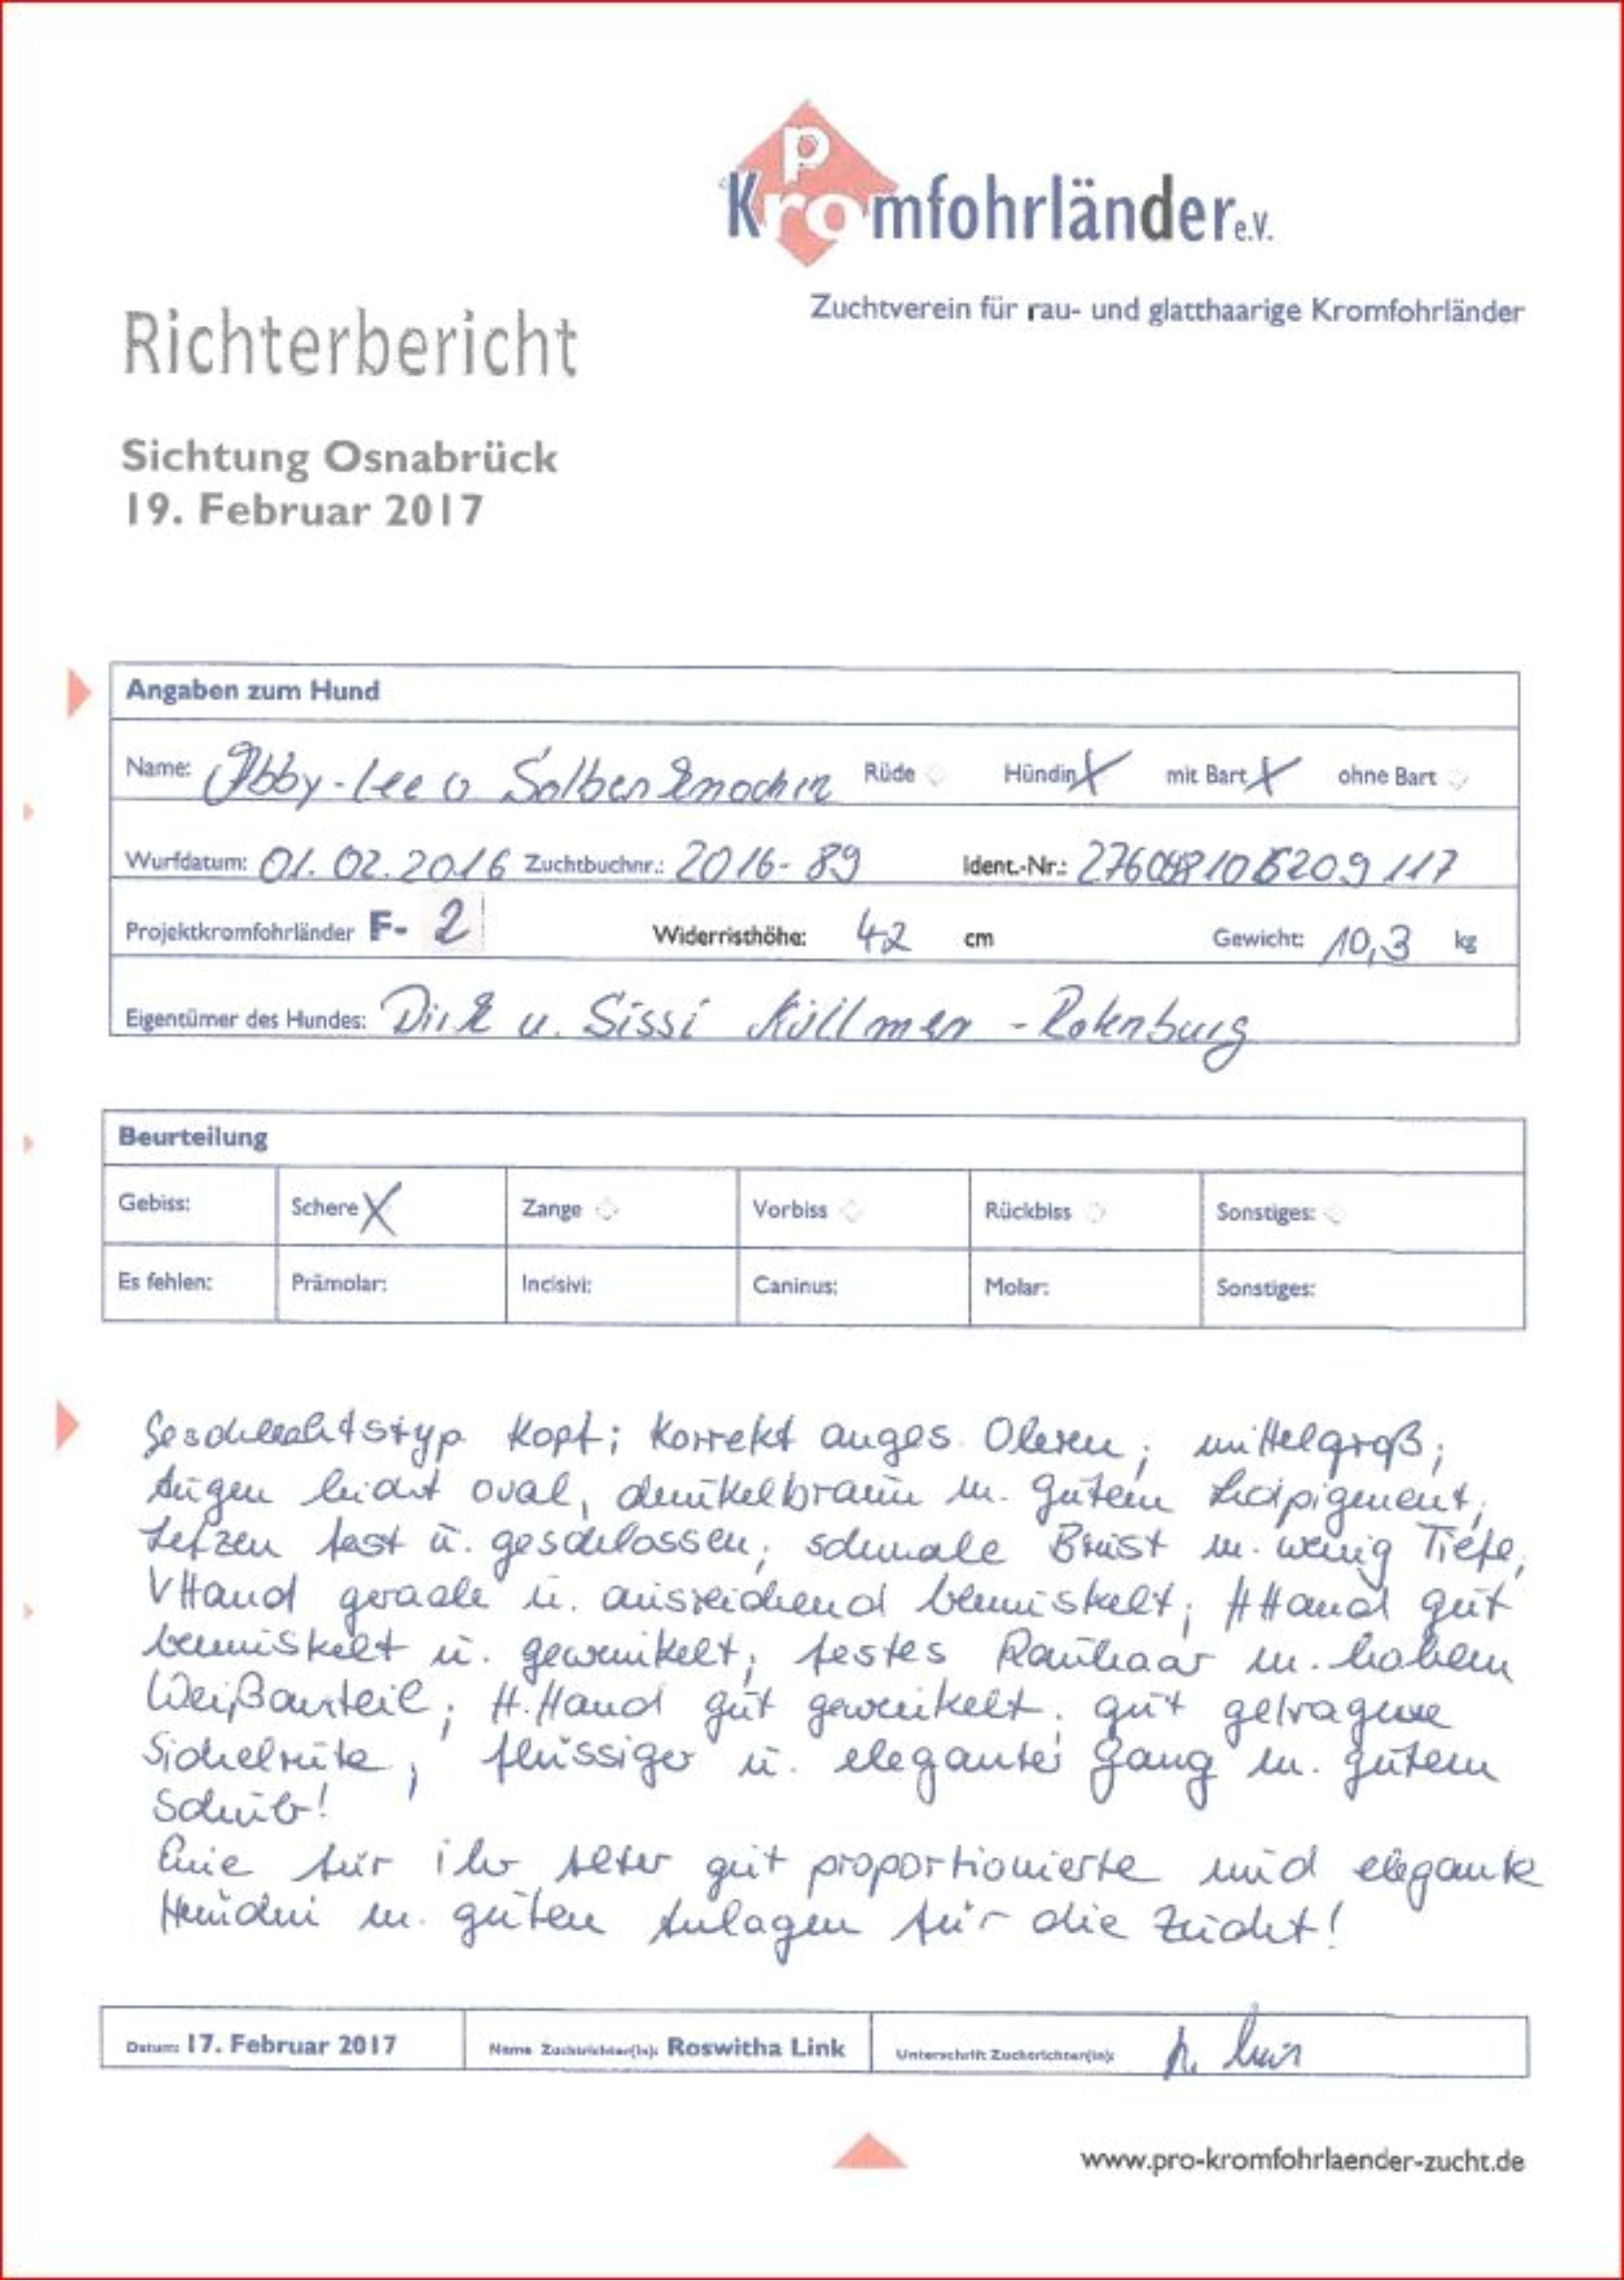 pro Kromfohrländer e.V.
Zuchtverein für rau- und glatthaarige Kromfohrländer
Richterbericht
Sichtung Osnabrück
19. Februar 2017
Angaben zum Hund
Name: Abby-Lee Rüde Hündin X mit Bart X ohne Bart
Wurfdatum: 01.02.2016 Zuchtbuchnr.: 2016-89 Ident.-Nr.:
Projektkromfohrländer F- 2 Widerristhöhe: 42 cm Gewicht: 10,3 kg
Eigentümer des Hundes: Dirk u. Sissi
Beurteilung
Gebiss: Schere X Zange Vorbiss Rückbiss Sonstiges:
Es fehlen: Prämolar: Incisivi: Caninus: Molar: Sonstiges:
Geschlechtstyp Kopf; korrekt anges. Ohren; mittelgroß;
Augen leicht oval, dunkelbraun m. gutem Lidpigment,
Lefzen fest u. geschlossen; schmale Brust m. wenig Tiefe,
VHand gerade u. ausreichend bemuskelt; HHand gut
bemuskelt u. gewinkelt; festes Rauhaar m. hohem
Weißanteil; H.Hand gut gewinkelt; gut getragene
Sichelrute, flüssiger u. eleganter Gang m. gutem
Schub!
Eine für ihr Alter gut proportionierte und elegante
Hündin m. guten Anlagen für die Zucht!
Datum: 17. Februar 2017 Name Zuchtrichter(in): Roswitha Link Unterschrift Zuchtrichter(in):
www.pro-kromfohrlaender-zucht.de